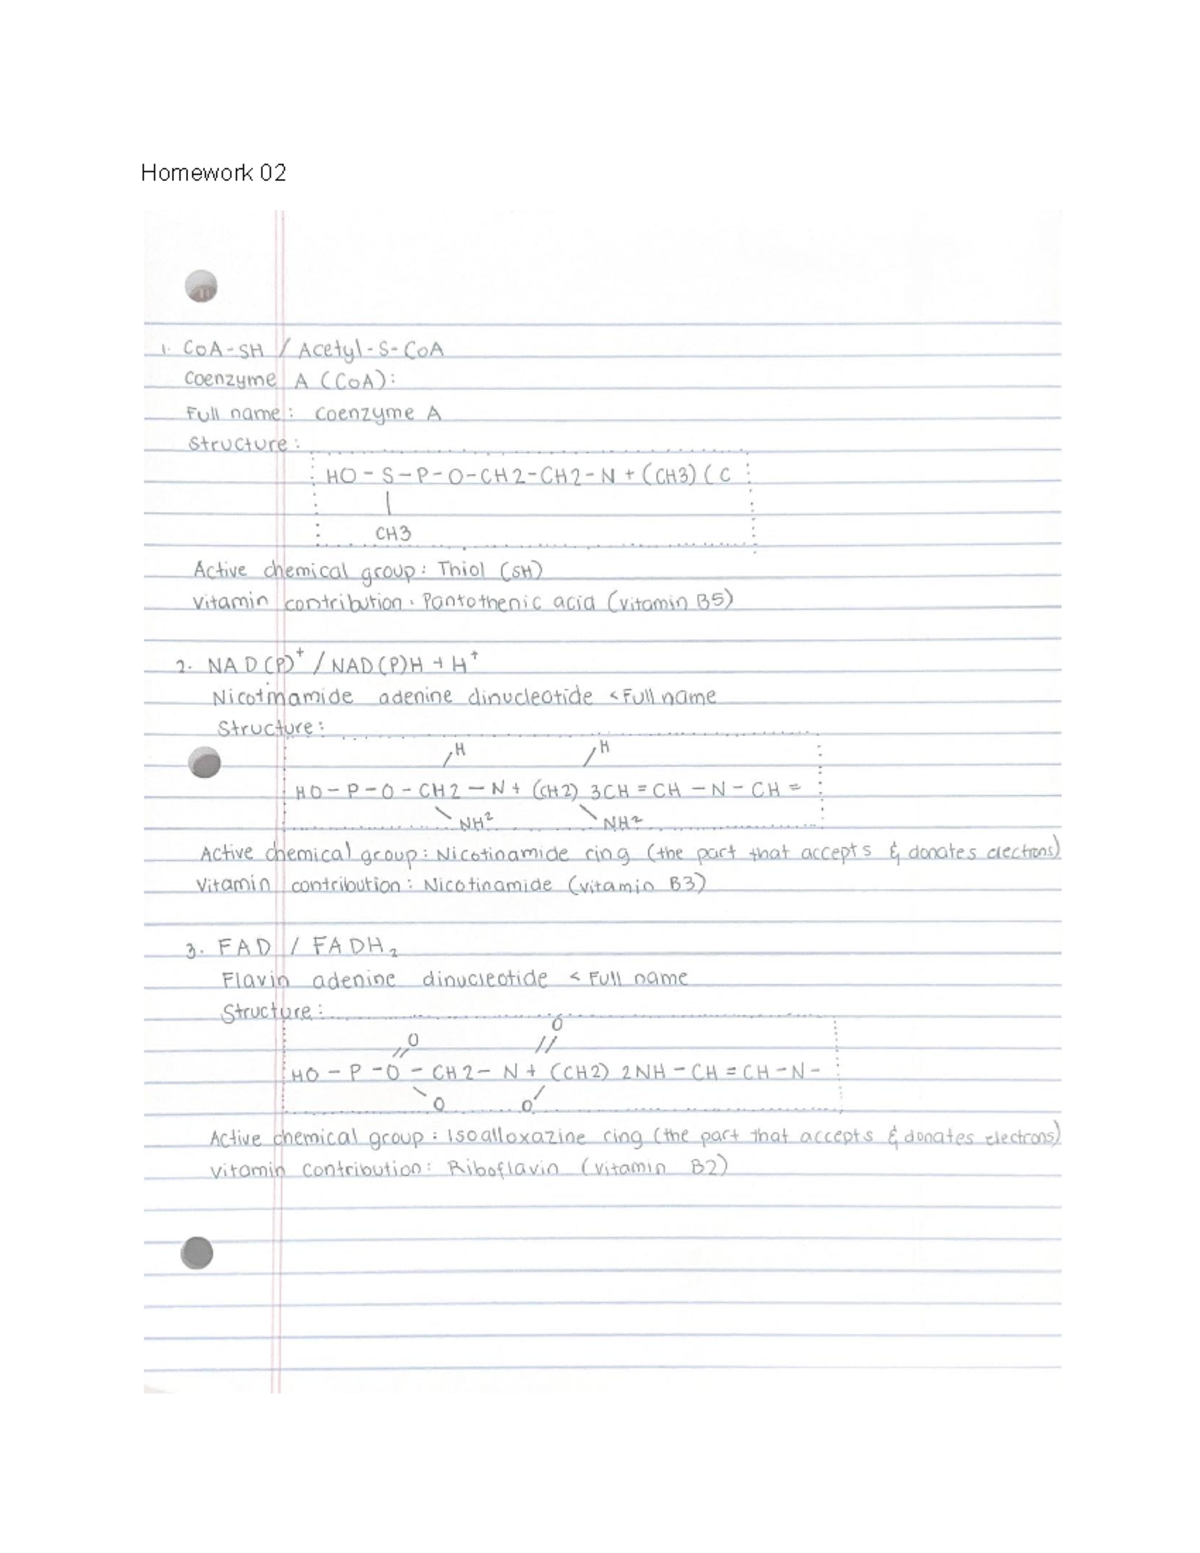 Homework 02
1. CoA-SH / Acetyl-S-CoA
Coenzyme A (CoA):
Full name: Coenzyme A
Structure:
HO-S-P-O-CH2-CH2-N+(CH3)(C
|
CH3
Active chemical group: Thiol (SH)
Vitamin contribution. Pantothenic acid (vitamin B5)
2. NAD(P)⁺ / NAD(P)H + H⁺
Nicotinamide adenine dinucleotide < Full name
Structure:
H H
HO-P-O-CH2-N+ (CH2) 3CH=CH-N-CH=
NH² NH²
Active chemical group: Nicotinamide ring (the part that accepts & donates electrons)
Vitamin contribution: Nicotinamide (vitamin B3)
3. FAD / FADH₂
Flavin adenine dinucleotide < Full name
Structure:
O
O
HO-P-O-CH2-N+ ((CH2) 2NH-CH=CH-N-
O O
Active chemical group: Isoalloxazine ring (the part that accepts & donates electrons)
Vitamin contribution: Riboflavin (vitamin B2)